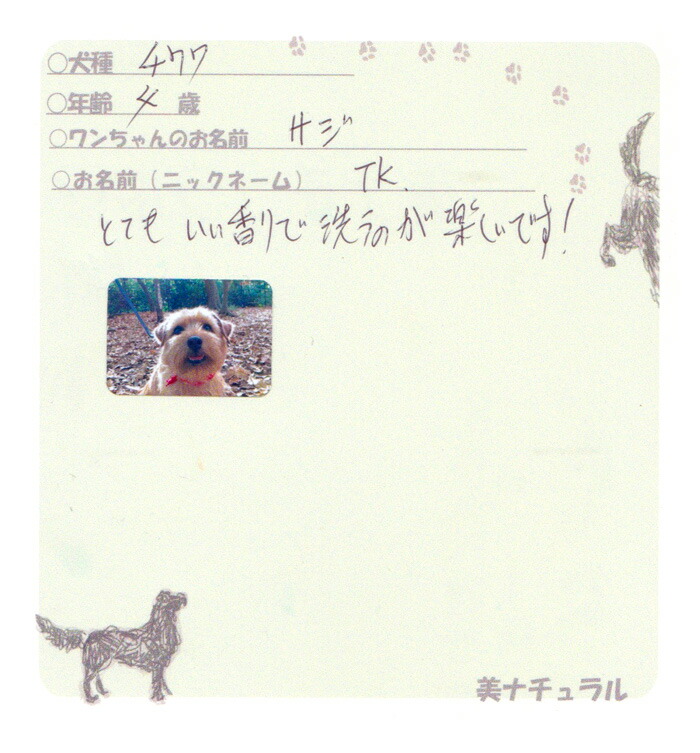 ○犬種 チワワ
○年齢 4 歳
○ワンちゃんのお名前 サジ
○お名前（ニックネーム） TK.
とても いい香りで 洗うのが 楽しいです！
美ナチュラル